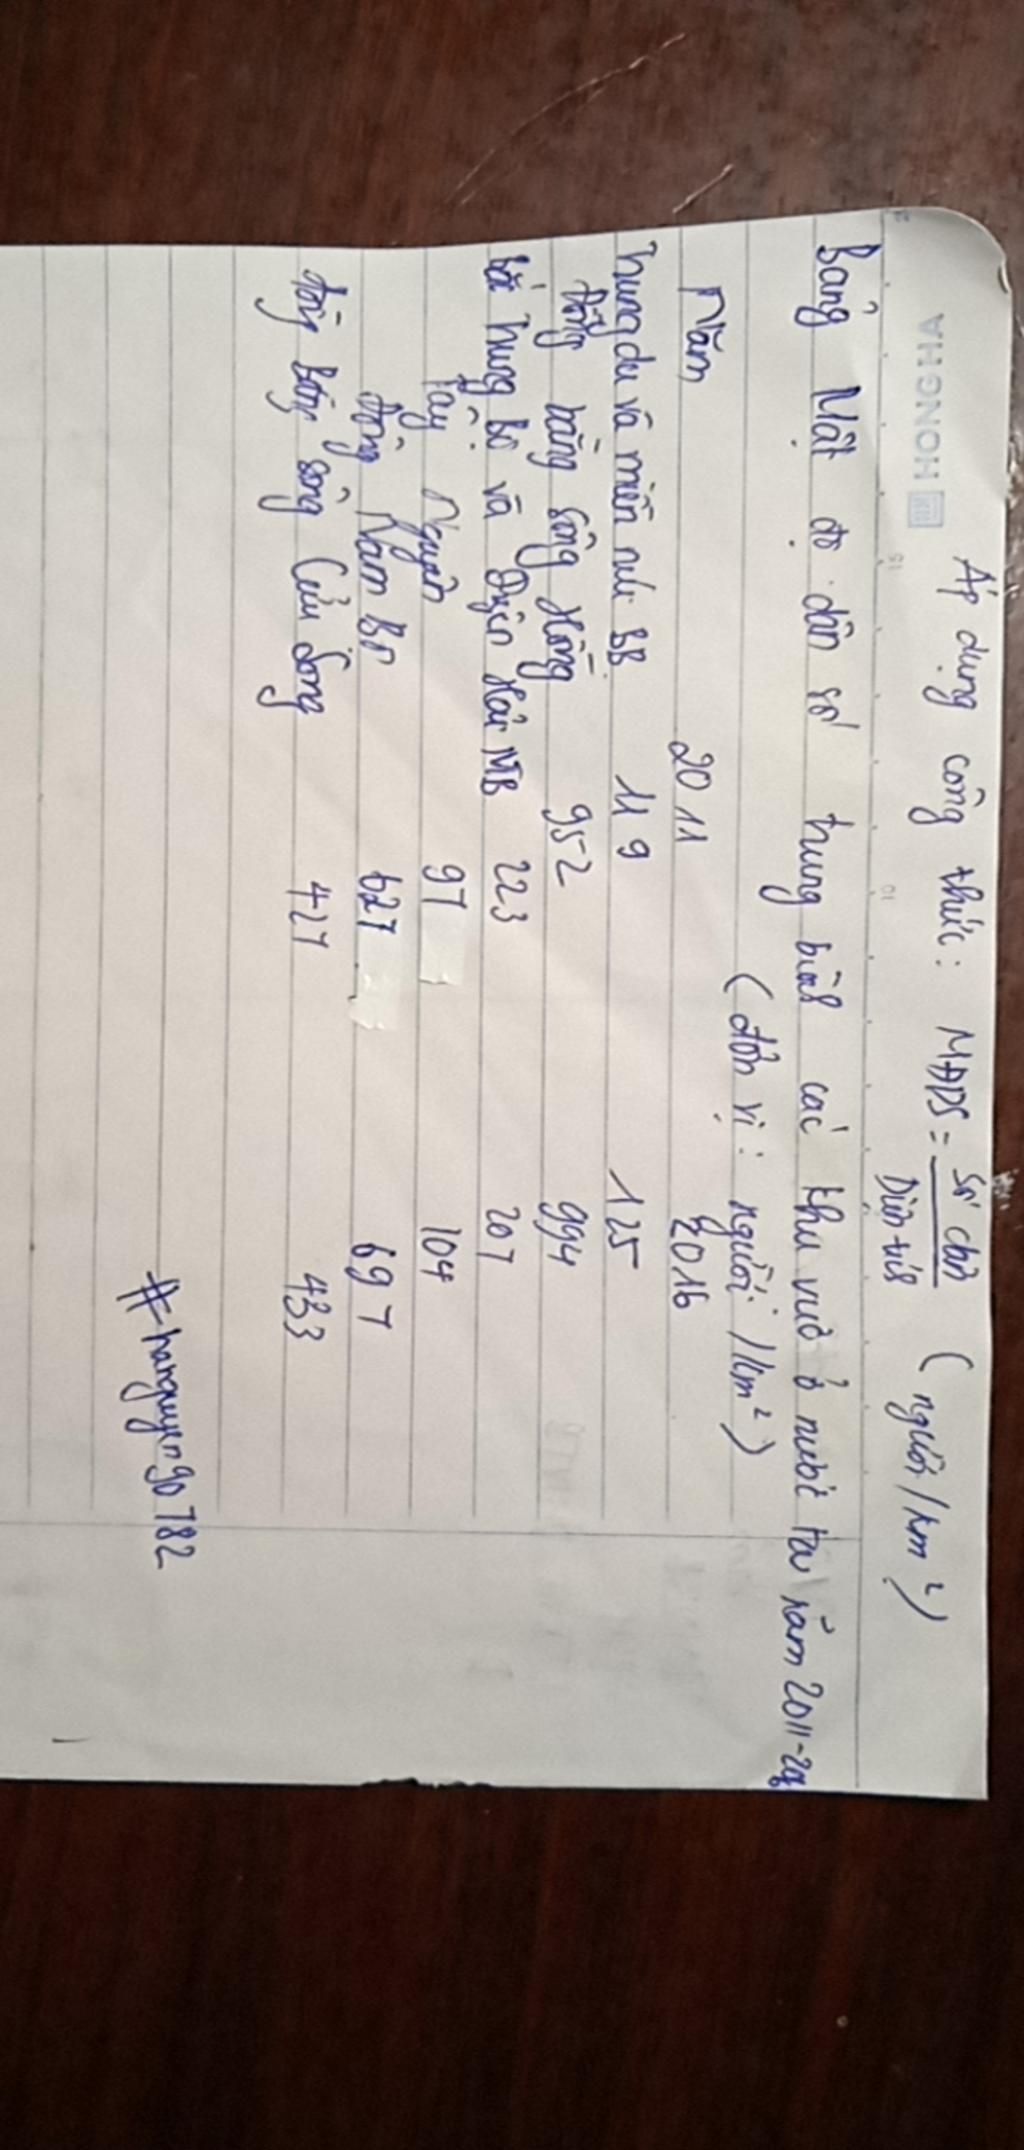 HONG HA
Áp dụng công thức: MĐDS = Số dân / Diện tích (người/km²)
Bảng Mật độ dân số trung bình các khu vực ở nước ta năm 2011-
(đơn vị: người/km²)
Năm 2011 2016
Trung du và miền núi BB 119 125
Đồng bằng sông Hồng 952 994
Bắc Trung Bộ và Duyên Hải MTB 223 207
Tây Nguyên 97 104
Đông Nam Bộ 627 697
đồng bằng sông Cửu Long 427 433
#hanguyen90782